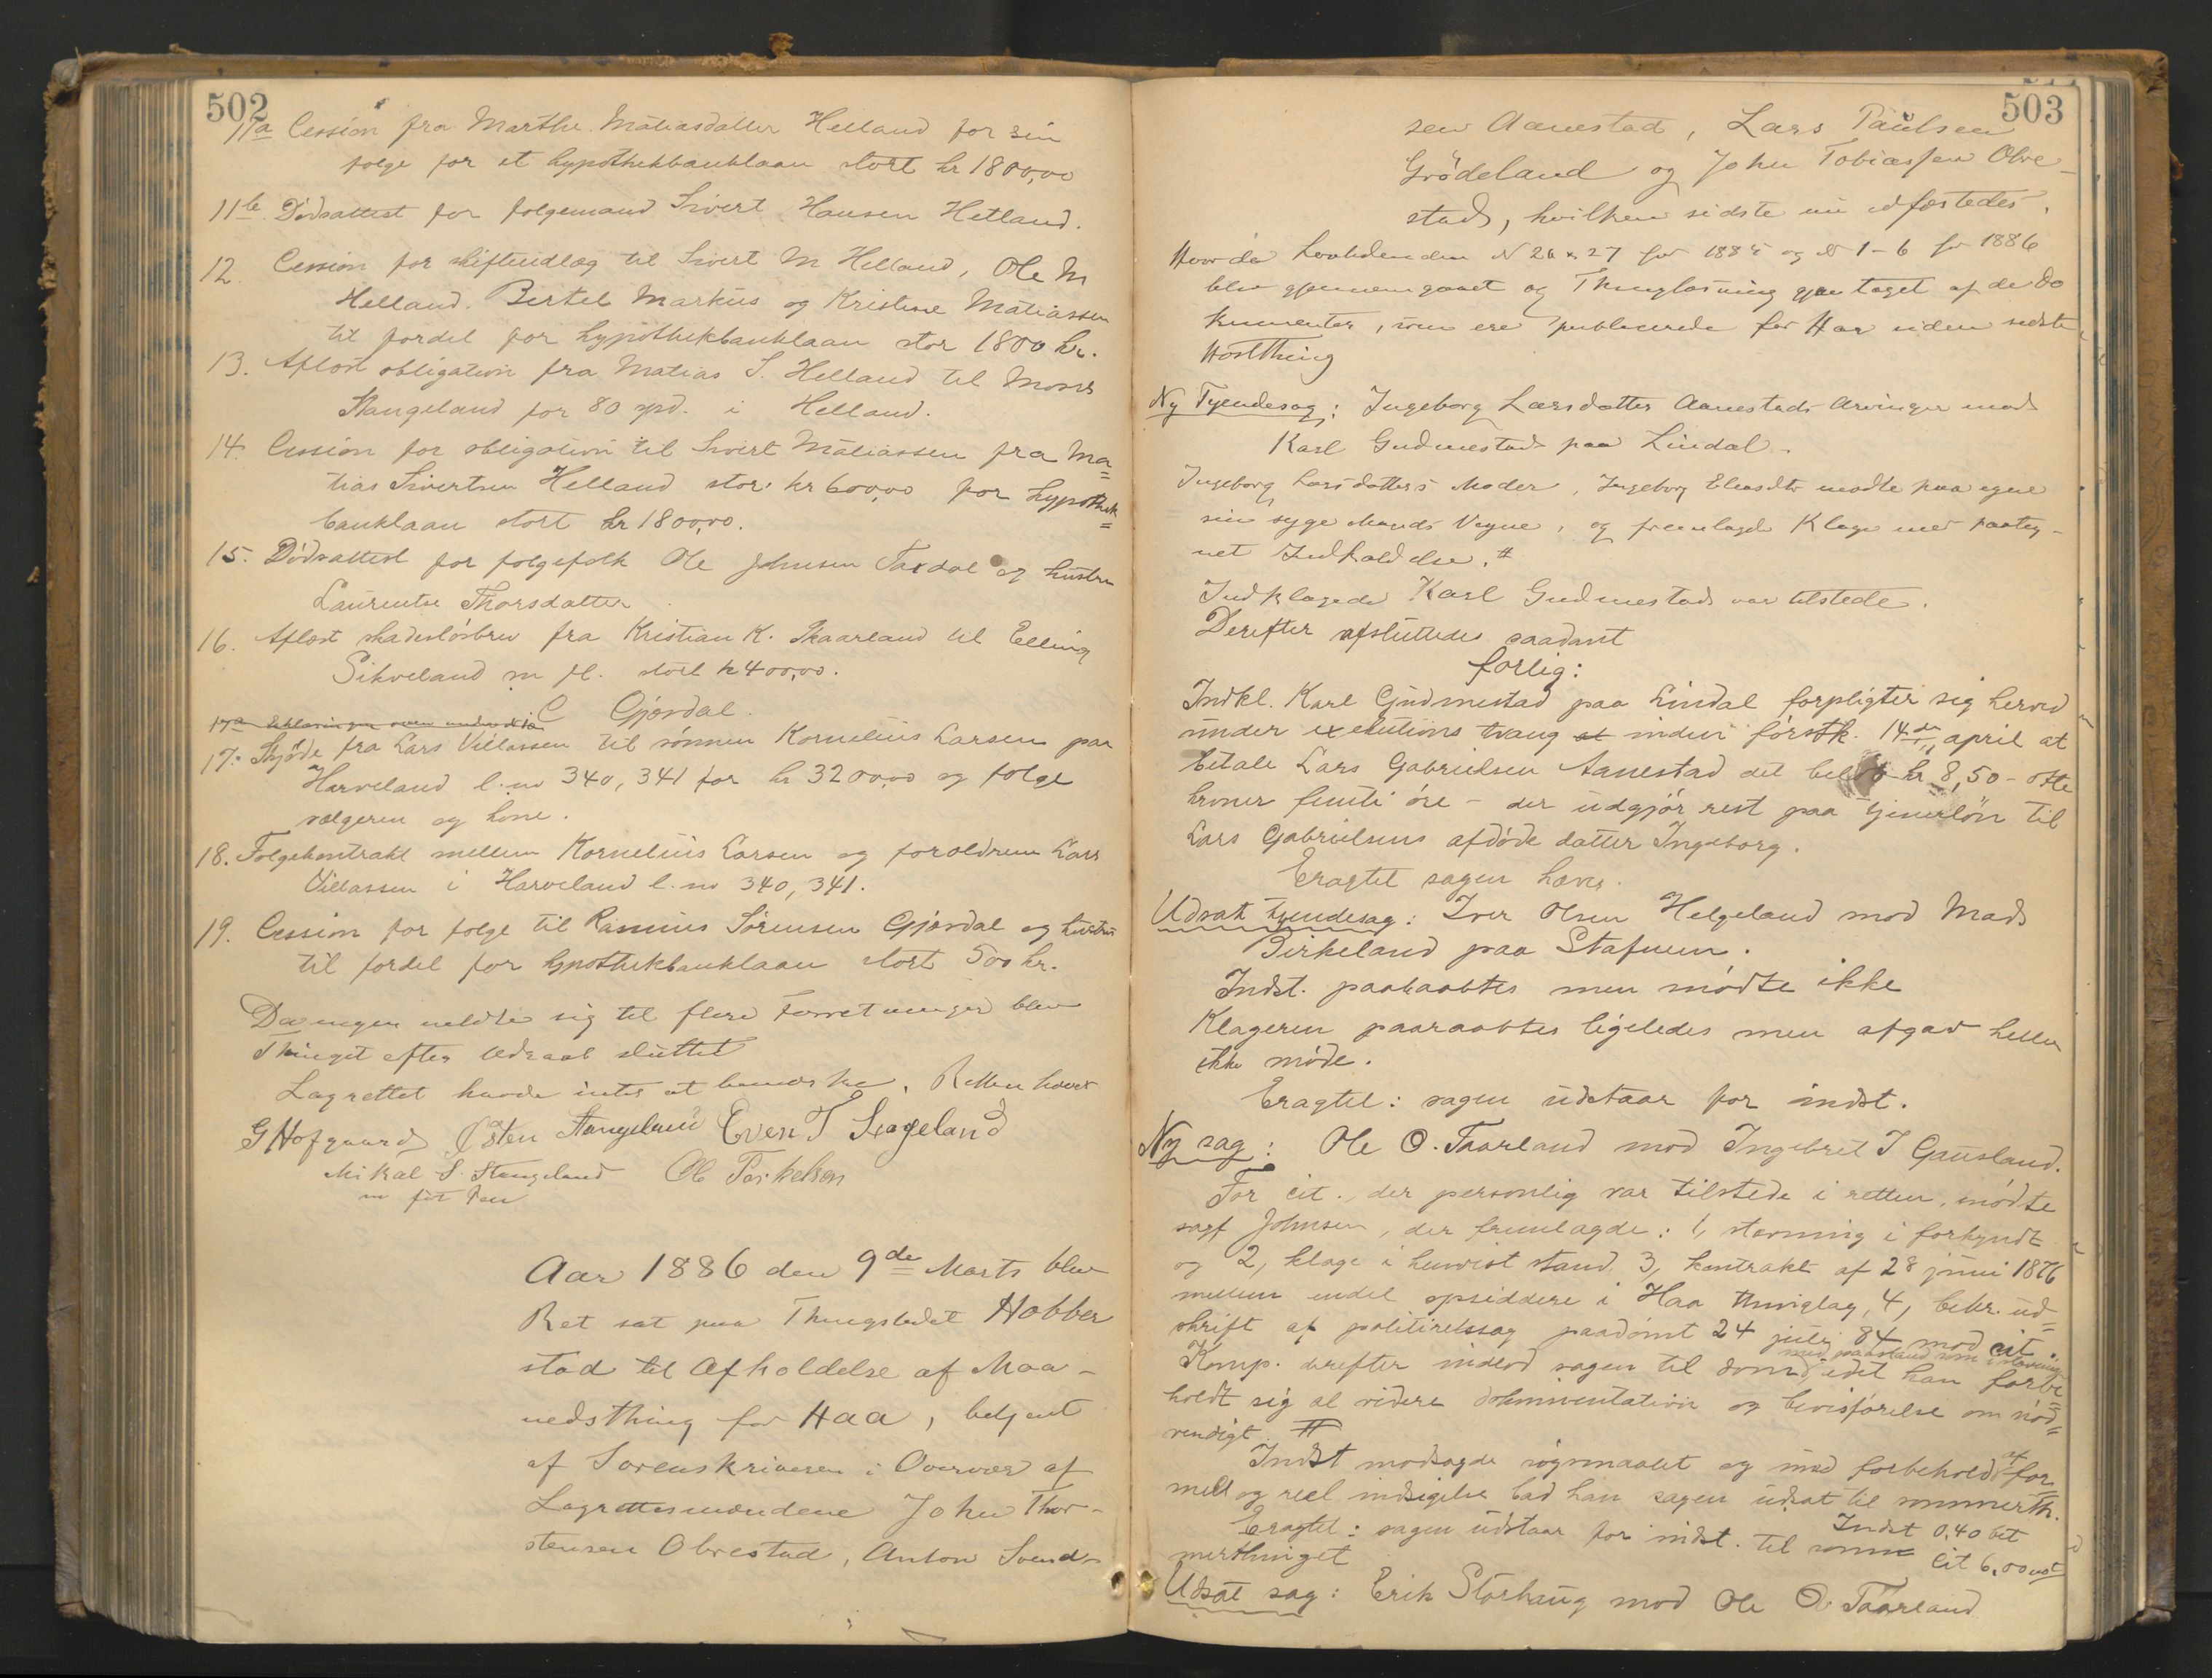 502
11a Cession fra Marthe Matiasdatter Helland for sin
folge for et hypothekbanklaan stort kr 1800,00
11b. Dödsattest for folgemand Sivert Hansen Hetland.
12. Cession for skifteudlæg til Sivert M Helland, Ole M
Helland. Bertel Markus og Kristine Matiassen
til fordel for hypothekbanklaan stor 1800 kr.
13. Aflöst obligation fra Matias S. Helland til Moses
Stangeland for 80 spd. i Helland.
14. Cession for obligation til Sivert Matiassen fra Ma=
tias Sivertsen Helland stor kr 600,00 for hypothek=
banklaan stort kr 1800,00.
15. Dödsattest for folgefolk Ole Johnsen Taxdal og hustru
Laurentse Thorsdatter
16. Aflöst skadeslösbrev fra Kristian K. Skaarland til Elling
Sikveland m fl. stort kr 400,00.
C Gjerdal.
17. Skjöde fra Lars Villassen til sönnen Kornelius Larsen paa
Harveland l. no 340, 341 for kr 3200,00 og folge
sælgeren og kone.
18. Folgekontrakt mellem Kornelius Larsen og forældrene Lars
Villassen i Harveland l. no 340, 341.
19. Cession for folge til Rasmus Sörensen Gjerdal og hustru
til fordel for hypothekbanklaan stort 500 kr.
Da ingen meldte sig til flere Forretninger blev
Thinget efter Udraab sluttet
Lagrettet havde intet at bemærke. Retten hævet
G Hofgaard Østen Stangeland Even T Liageland
Mikal S. Stangeland Ole Terkelsen
m för Pen
Aar 1886 den 9de Marts blev
Ret sat paa Thingstedet Hobber
stad til Afholdelse af Maa-
nedsthing for Haa, betjent
af Sorenskriveren i Overvær af
Lagrettesmændene John Thor-
stensen Obrestad, Anton Svend-
503
sen Aanestad, Lars Paulsen
Grödeland og John Tobiassen Obre-
stad, hvilken sidste nu edfæstedes.
Hvorda Lovtidenden N 26 & 27 for 1885 og N 1-6 for 1886
blev gjennemgaaet og Thinglæsning gjentaget af de Do
kumenter, som ere publicerede for Haa siden sidste
Höstthing
Ny Tyendesag: Ingeborg Larsdatter Aanestads Arvinger mod
Karl Gudmestad paa Lindal.
Ingeborg Larsdatters Moder, Ingeborg Eliasdtr mødte paa egne
sin syge Mands Vegne, og fremlagde Klage med paateg-
net Indkaldelse. #
Indklagede Karl Gudmestad var tilstede.
Derefter afsluttedes saadant
forlig:
Indkl. Karl Gudmestad paa Lindal forpligter sig herved
under exekutions tvang at inden förstk. 14de april at
betale Lars Gabrielsen Aanestad det belöb kr 8,50 - otte
kroner femti öre - der udgjör rest paa tjenerlön til
Lars Gabrielsens afdöde datter Ingeborg.
Eragtet sagen hæves.
Udsat tyendesag: Iver Olsen Helgeland mod Mads
Birkeland paa Stafnem.
Indst. paaraabtes men mödte ikke
Klageren paaraabtes ligeledes men afgav heller
ikke möde.
Eragtet: sagen udstaar for indst.
Ny sag: Ole O. Taarland mod Ingebret I Gausland.
For cit., der personlig var tilstede i retten, mödte
sagf Johnsen, der fremlagde: 1, stevning i forkyndt
og 2, klage i henvist stand. 3, kontrakt af 28 juni 1876
mellem endel opsiddere i Haa thinglag, 4, bekr. ud=
skrift af politiretssag paadömt 24 juli 84 mod cit.
med paastand som i stevning
Komp. derefter indlod sagen til dom, idet han forbe=
holdt sig al videre dokumentation og bevisförelse om nöd=
vendigt. #
Indst modsagde sögsmaalet og med forbehold af for=
mell og reel indsigelse bad han sagen udsat til sommerth.
Indst 0,40 bet
Eragtet: sagen udstaar for indst. til som
cit 6,00
merthinget
Udsat sag: Erik Storhaug mod Ole O. Taarland